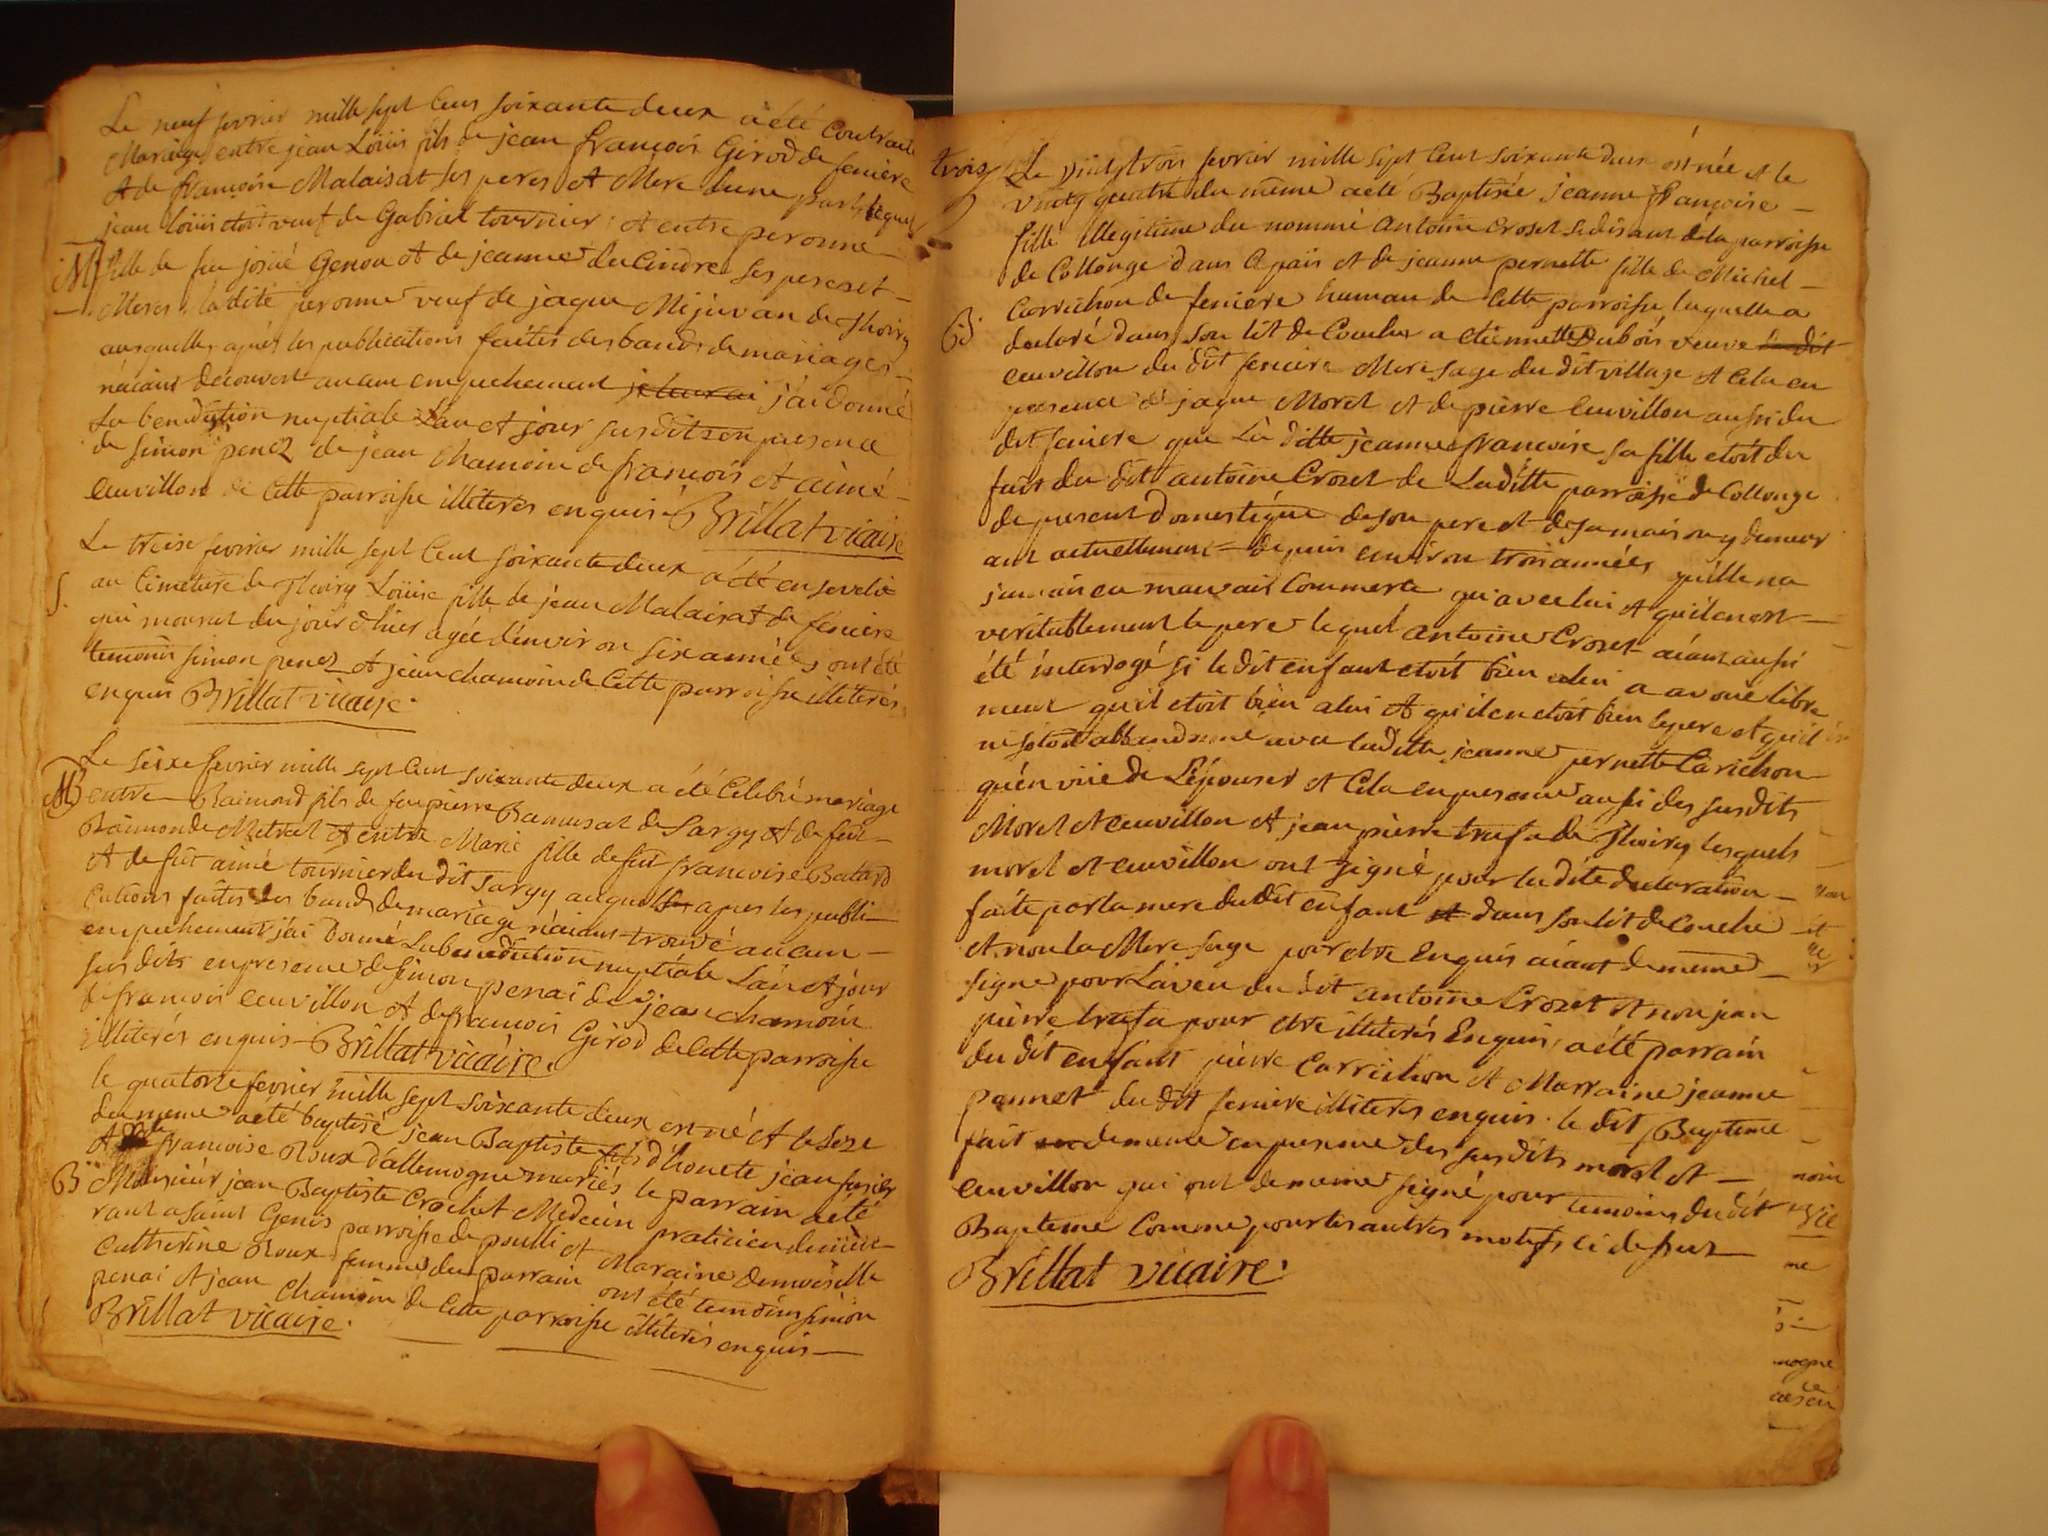 Le neuf fevrier mille sept Cens soixante deux a été Contracté
Mariage entre jean Loüis fils de jean françois Girod de feniere
et de françoise Malaisat ses peres et Mere d'une part lequel
jean loüis etoit veuf de Gabriel tournier et entre peronne
M fille de feu josué Genou et de jeanne du Cindre ses peres et
Meres ladite peronne veuf de jaque Mijuvan de Thoiry
ausquelles après les publications faites des bands de mariages
n'aiant decouvert aucun empechement je leur ai j'ai donné
La benediction nuptiale L'an et jour susdits en presence
de simon penez de jean Chamoin de françois et aimé
Cuvillon de Cette parroisse illiterés enquis Brillat vicaire
Le treise fevrier mille sept Cent soixante deux a été enseveli
S. au Cimetiere de Thoiry Loüise fille de jean Malaisat de feniere
qui mourut du jour d'hier agée d'environ six années ont été
temoins simon penez et jean chamoin de Cette parroisse illiterés
enquis Brillat vicaire.
Le seixe fevrier mille sept Cent soixante deux a été Celebré mariage
M entre Raimond fils de feu pierre Ramusat de Sargy et de feüe
Raimonde Metral et entre Marie fille de feu françoise Batard
et de feüe aimé tournier du dit Sargy auquelles apres les publi
cations faites des bands de mariage n'aiant trouvé aucun
empechement j'ai donné La benediction nuptiale L'an et jour
susdits en presence de simon penai de jean chamoin
de françois Cuvillon et de françois Girod de Cette parroisse
illiterés enquis Brillat vicaire.
le quatorze fevrier mille sept soixante deux est né et le seze
du meme a eté baptisé jean Baptiste fils d'honete jean fusier
et françoise Roux d'allemogne mariés le parrain a eté
B Monsieur jean Baptiste Crochet Medecin praticien demeu
rant a saint Genis parroisse de poulli et Maraine demoiselle
Catherine Roux femme du parrain ont été temoins simon
penai et jean Chamoin de Cette parroisse illiterés enquis
Brillat vicaire.
trois Le vingt trois fevrier mille sept Cent soixante deux est née et le
vingt quatre du même a eté Baptisée jeanne françoise
fille illegitime du nommé antoine Croset se disant de la parroisse
de Collonge dans Ce païs et de jeanne pernette fille de Michel
Carrichon de feniere hameau de Cette parroisse laquelle a
B. declaré dans son lit de Couches a etiennette Dubois veuve du dit
Cuvillon du dit feniere Mere sage du dit village et Cela en
presence de jaque Morel et de pierre Cuvillon aussi du
dit feniere que La ditte jeanne françoise sa fille etoit du
fait du dit antoine Crozet de La ditte parroisse de Collonge
de present Domestique de son pere et de sa maison y demeur
ant actuellement depuis environ trois années qu'elle n'a
jamais eu mauvais Commerce qu'avec lui et qu'il en est
veritablement le pere lequel antoine Crozet aiant aussi
été interrogé si le dit enfant etoit bien a lui a avoüé libre
ment qu'il etoit bien a lui et qu'il en etoit bien le pere et qu'il
ne s'etoit abbandonné avec laditte jeanne pernette Carichon
qu'en vüe de L'épouser et Cela en presence aussi des susdits
Morel et Cuvillon et jean pierre trufa de Thoiry lesquels
morel et Cuvillon ont signé pour ladite declaration
faite par la mere du dit enfant et dans son lit de Couche
et non la Mere sage pour etre Enquis aiant de meme
signé pour L'aveu du dit antoine Crozet et non jean
pierre trufa pour etre illiterés Enquis, a été parrain
du dit enfant pierre Carrichon et Marraine jeanne
pannet du dit feniere illiterés enquis. le dit Bapteme
fait de meme en presence des susdits morel et
Cuvillon qui ont de meme signé pour temoins du dit
Bapteme Comme pour les autres motifs ci dessus
Brillat vicaire.